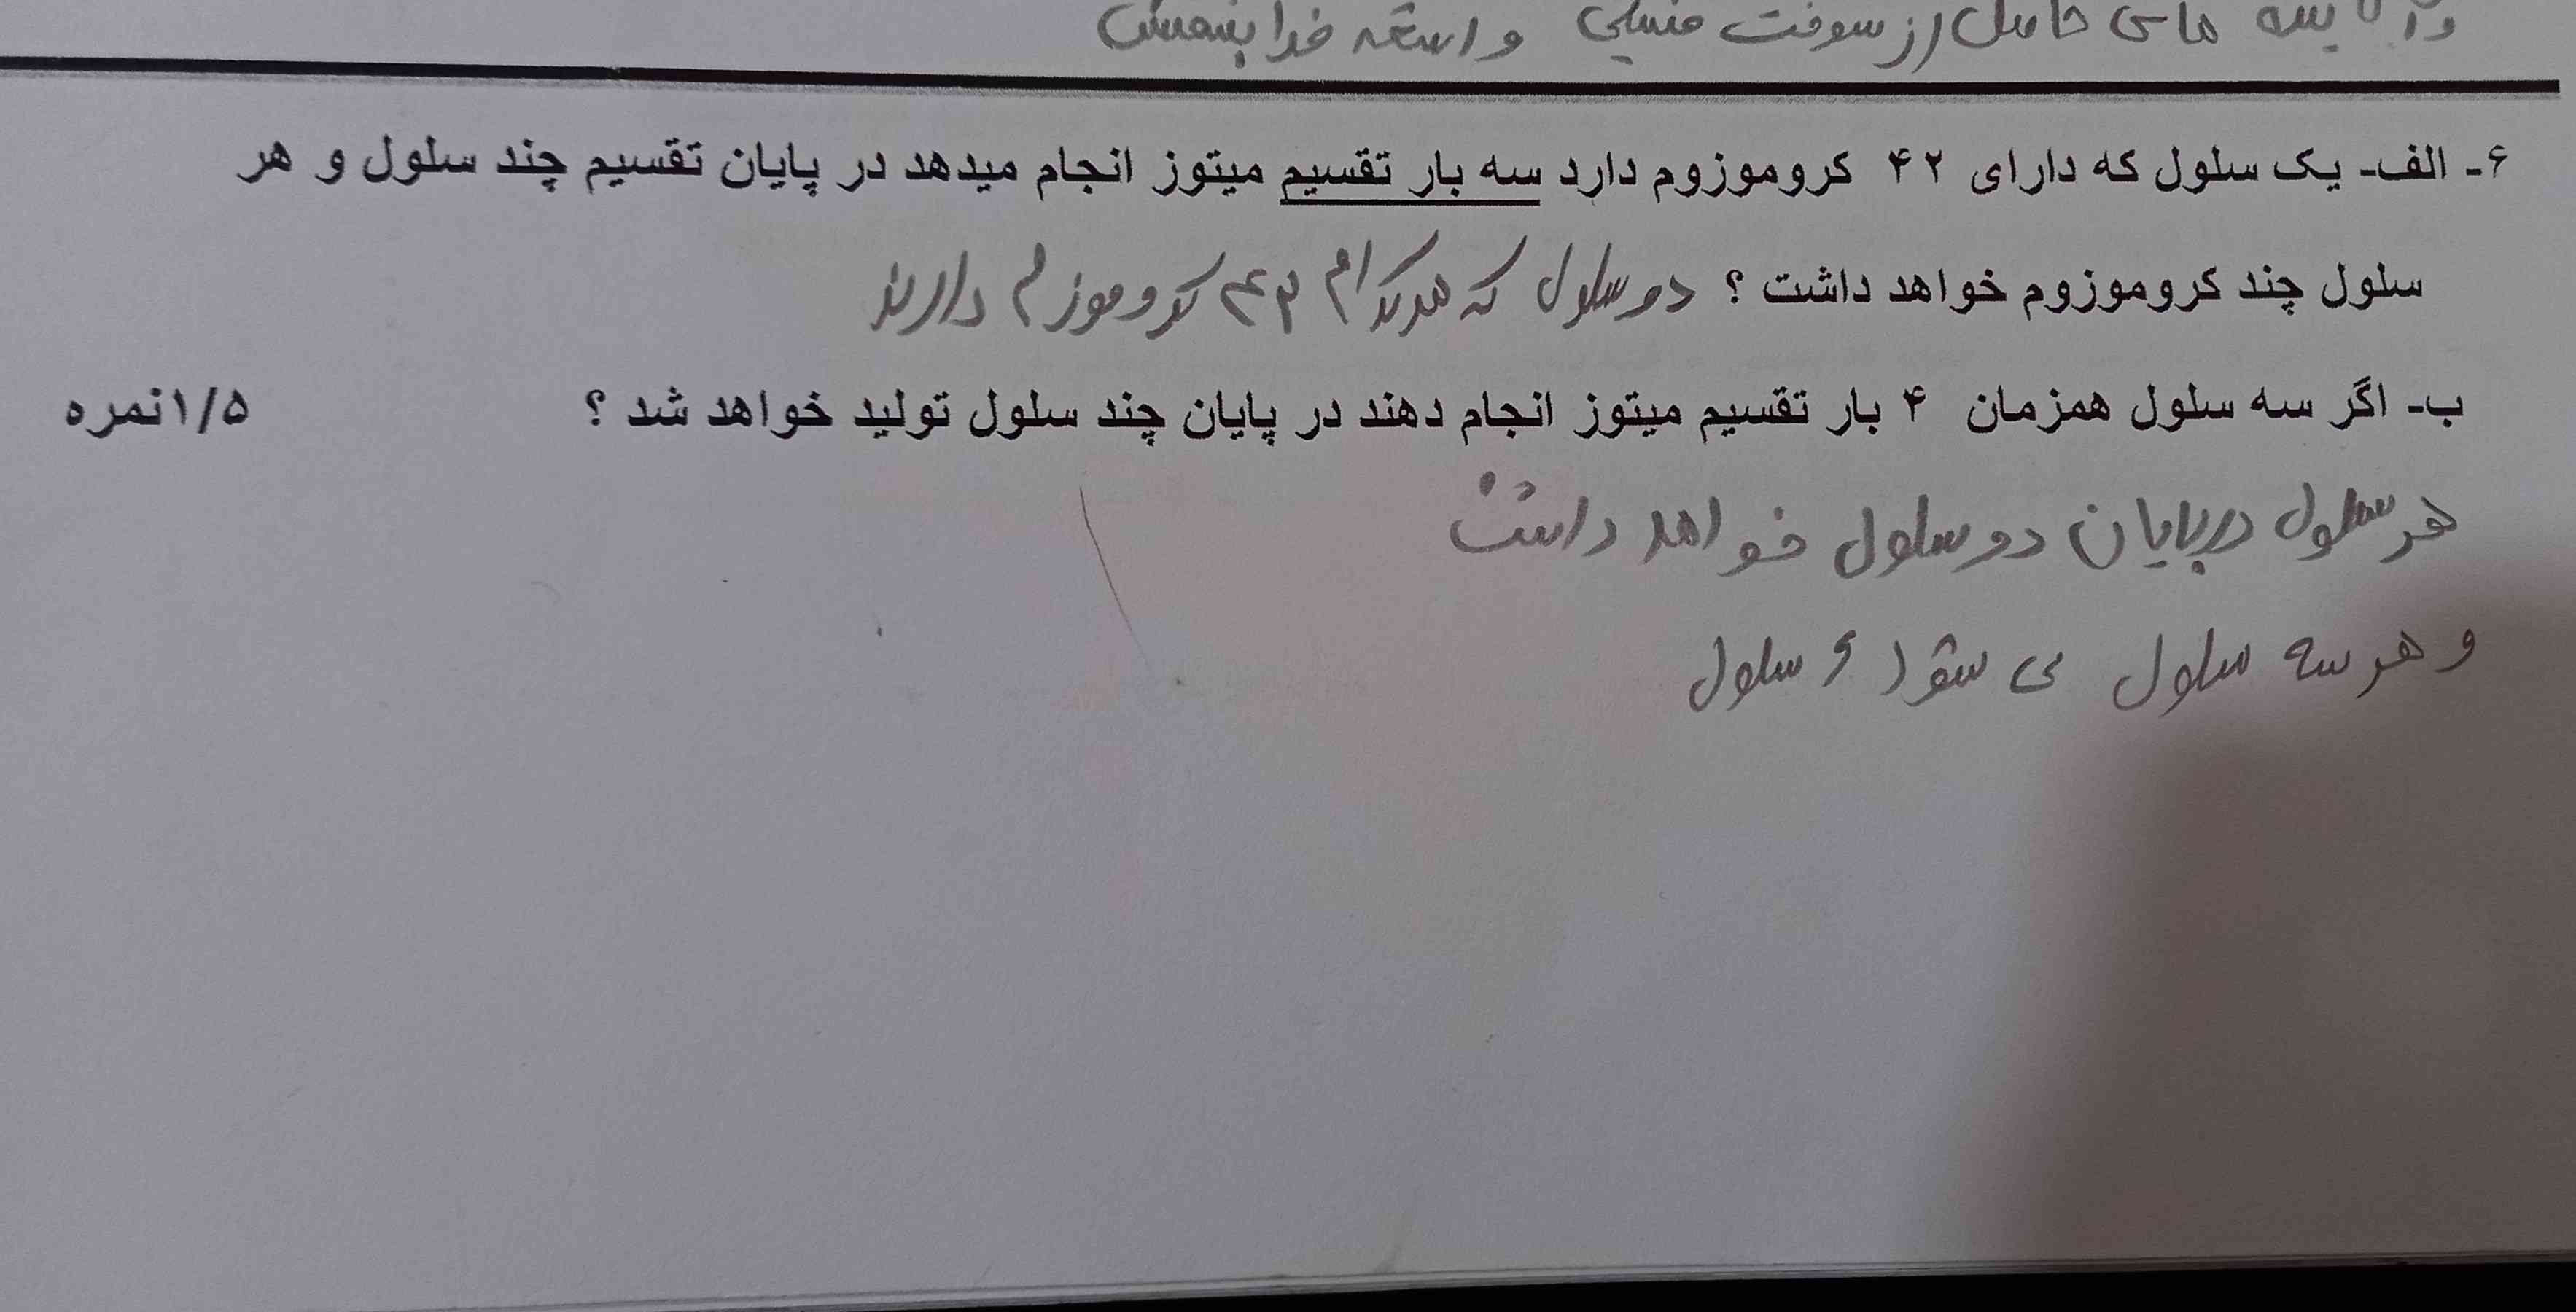 های حاصل از سوخت فسیلی و استفه خدا بنفمش
۶- الف- یک سلول که دارای ۴۲ کروموزوم دارد سه بار تقسیم میتوز انجام میدهد در پایان تقسیم چند سلول و هر
سلول چند کروموزوم خواهد داشت ؟ دو سلول که هرکدام ۴۲ کروموزم دارند
ب- اگر سه سلول همزمان ۴ بار تقسیم میتوز انجام دهند در پایان چند سلول تولید خواهد شد ؟ ۱/۵نمره
هر سلول درپایان دو سلول خواهد داشت
و هر سه سلول می شود ۶ سلول